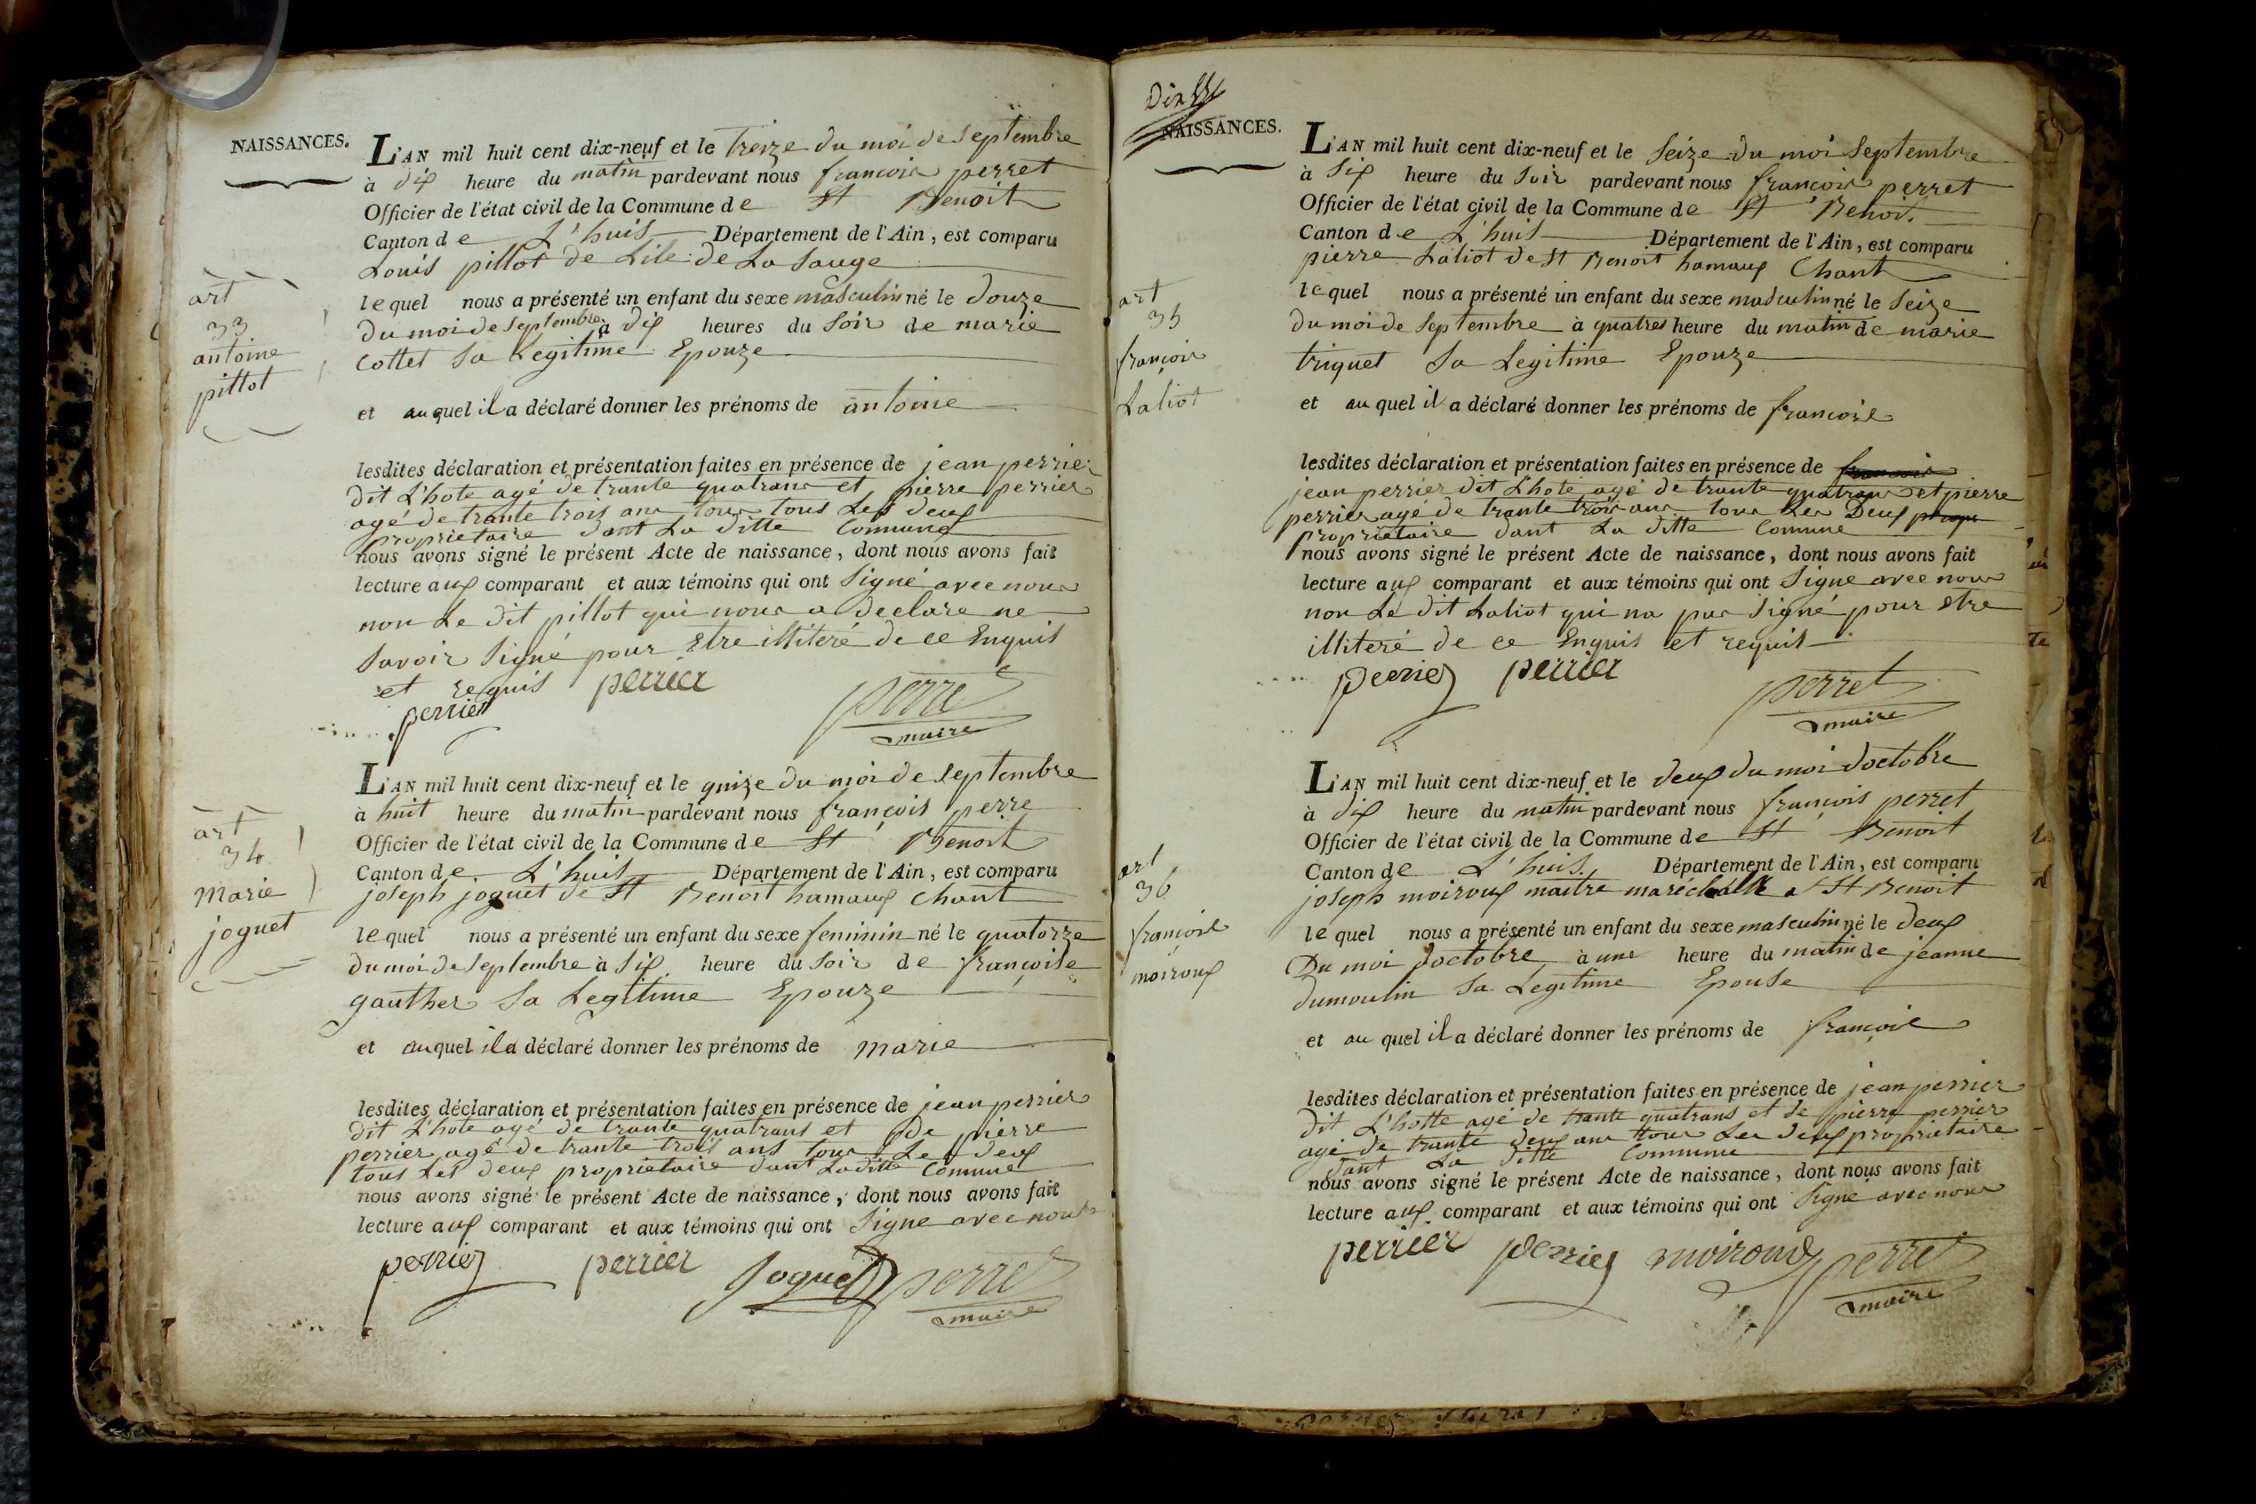 NAISSANCES.
L'AN mil huit cent dix-neuf et le treize du moi de septembre
à dix heure du matin pardevant nous françois perret
Officier de l'état civil de la Commune de St Benoit
Canton de L'huis Département de l'Ain, est comparu
Louis pillot de Lile de La Sauge
lequel nous a présenté un enfant du sexe masculin né le douze
du moi de septembre à dix heures du soir de marie
Cottet sa Legitime Epouze
et auquel il a déclaré donner les prénoms de antoine
lesdites déclaration et présentation faites en présence de jean perrier
dit L'hote agé de trante quatrans et pierre perrier
agé de trante trois ans tous tous Les deux
proprietaire dant La ditte Commune
nous avons signé le présent Acte de naissance, dont nous avons fait
lecture aux comparant et aux témoins qui ont signé avec nous
non Le dit pillot qui nous a declare ne
savoir signé pour Etre illiteré de ce Enquis
et requis perrier
perrier perret
maire
art
33
antoine
pillot
L'AN mil huit cent dix-neuf et le quize du moi de septembre
à huit heure du matin pardevant nous françois perre
Officier de l'état civil de la Commune de St Benoit
Canton de L'huis Département de l'Ain, est comparu
joseph joguet de St Benoit hamaux Chant
lequel nous a présenté un enfant du sexe feminin né le quatorze
du moi de septembre à six heure du soir de françoise
gauther sa Legitime Epouze
et auquel il a déclaré donner les prénoms de marie
lesdites déclaration et présentation faites en présence de jean perrier
dit L'hote agé de trante quatrans et de pierre
perrier agé de trante trois ans tous Les deux
tous Les deux proprietaire dant La ditte Commune
nous avons signé le présent Acte de naissance, dont nous avons fait
lecture aux comparant et aux témoins qui ont signe avec nous
perrier perrier Joguet perret
maire
art
34
Marie
joguet
NAISSANCES.
L'AN mil huit cent dix-neuf et le seize du moi septembre
à six heure du soir pardevant nous françois perret
Officier de l'état civil de la Commune de St Benoit
Canton de L'huis Département de l'Ain, est comparu
pierre Laliot de St Benoit hamaux Chant
lequel nous a présenté un enfant du sexe masculin né le seize
du moi de septembre à quatres heure du matin de marie
triquet sa Legitime Epouze
et au quel il a déclaré donner les prénoms de françois
lesdites déclaration et présentation faites en présence de françois
jean perrier dit L'hote agé de trante quatrans et pierre
perrier agé de trante trois ans tous Les Deux
proprietaire dant La ditte Commune
nous avons signé le présent Acte de naissance, dont nous avons fait
lecture aux comparant et aux témoins qui ont signe avec nous
non Le dit Laliot qui na pas signé pour Etre
illiteré de ce Enquis et requis
perrier perrier perret
maire
art
35
françois
Laliot
L'AN mil huit cent dix-neuf et le deux du moi doctobre
à dix heure du matin pardevant nous françois perret
Officier de l'état civil de la Commune de St Benoit
Canton de L'huis. Département de l'Ain, est comparu
joseph moiroux maitre maréchalle a St Benoit
lequel nous a présenté un enfant du sexe masculin né le deux
Du moi doctobre à une heure du matin de jeanne
dumoulin sa Legitime Epouse
et au quel il a déclaré donner les prénoms de françois
lesdites déclaration et présentation faites en présence de jean perrier
dit L'hotte agé de trante quatrans et de pierre perrier
agé de trante deux ans tous Les deux proprietaire
dant La ditte Commune
nous avons signé le présent Acte de naissance, dont nous avons fait
lecture aux comparant et aux témoins qui ont signe avec nous
perrier perrier moiroud perret
maire
art
36
françois
moiroux